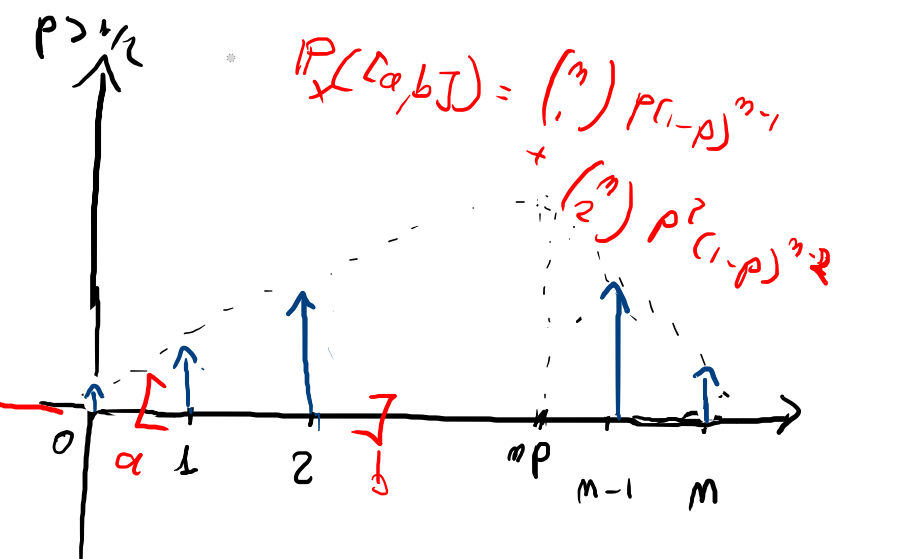 p > 1/2
ℙ_x([a,b]) = (n 1) p(1-p)^{n-1}
+
(n 2) p^2 (1-p)^{n-2}
0 a 1 2 b np n-1 n